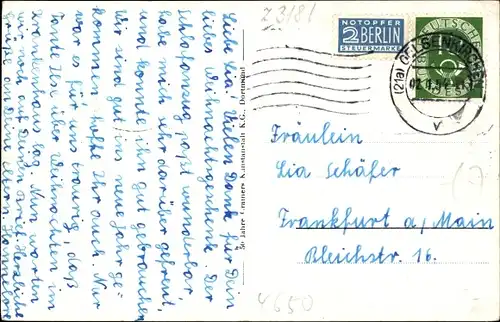 Z 3181
NOTOPFER
2 BERLIN
STEUERMARKE
DEUTSCHE
(21a) GELSENKIRCHEN
Liebe Lia! Vielen Dank für Dein
liebes Weihnachtsgeschenk. Der
Schlafanzug paßt wunderbar,
habe mich sehr darüber gefreut,
und konnte ihn gut gebrauchen.
Wir sind gut ins neue Jahr ge-
kommen, hoffe Ihr auch. Nur
war es für uns traurig, daß
Tante Ida über Weihnachten im
Krankenhaus lag. Nun warten
wir noch auf Deinen Brief. Herzliche
Grüße an Deine Eltern. Hannelore
50 Jahre Emmers Kunstanstalt K.G., Dortmund
Fräulein
Lia Schäfer
Frankfurt a/Main
Bleichstr. 16.
4650